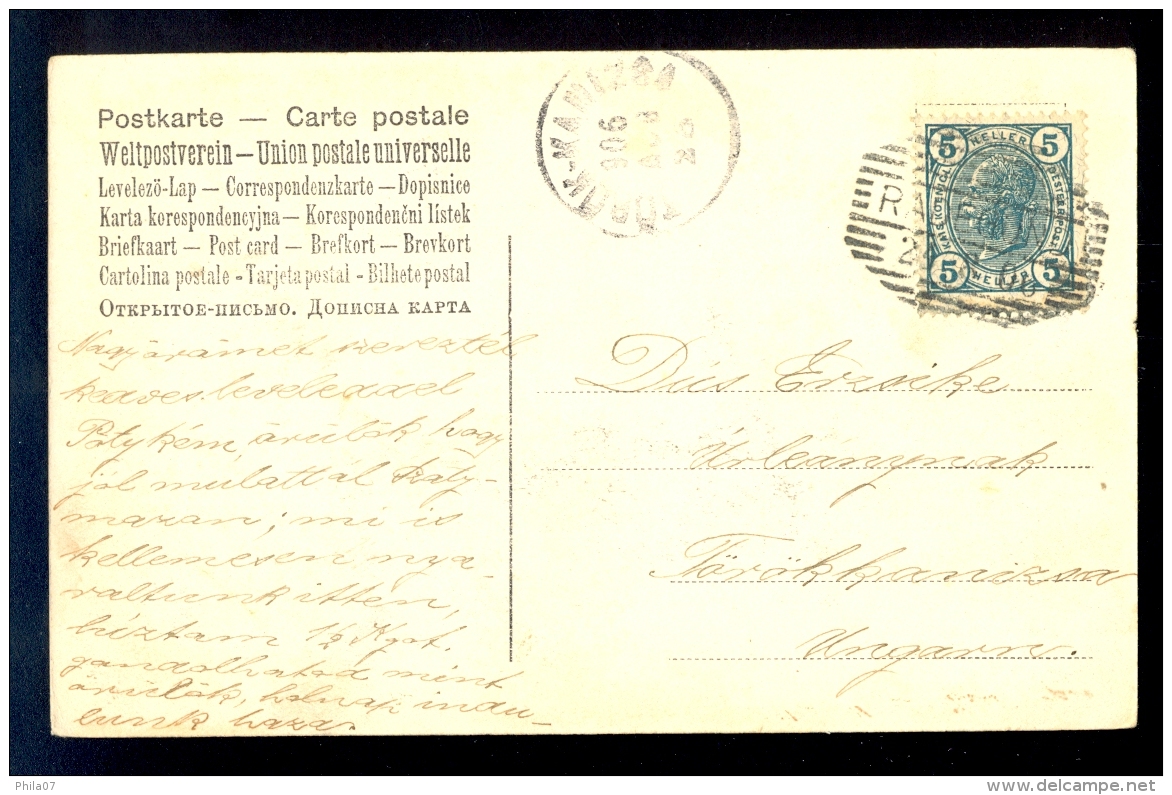 Postkarte — Carte postale
Weltpostverein – Union postale universelle
Levelező-Lap — Correspondenzkarte – Dopisnice
Karta korespondencyjna – Korespondenčni lístek
Briefkaart — Post card — Brefkort — Brevkort
Cartolina postale - Tarjeta postal - Bilhete postal
Открытое-письмо. Дописна карта
TÖRÖK-KANIZSA
906
AUG
5 HELLER 5
KAIS. KOENIGL. OESTERR. POST
5 HELLER 5
RA
2
Nagy örömet szereztél
kedves leveleddel
Pötykém, örülök hogy
jól mulattál Szaty-
mazon; mi is
kellemesen nya-
raltunk itten,
híztam 1½ Kgot,
gondolhatod mint
örülök, holnap indu-
lunk haza.
Dúcs Erzsike
Úrleánynak
Törökkanizsa
Ungarn.
Phila07
delcampe.net